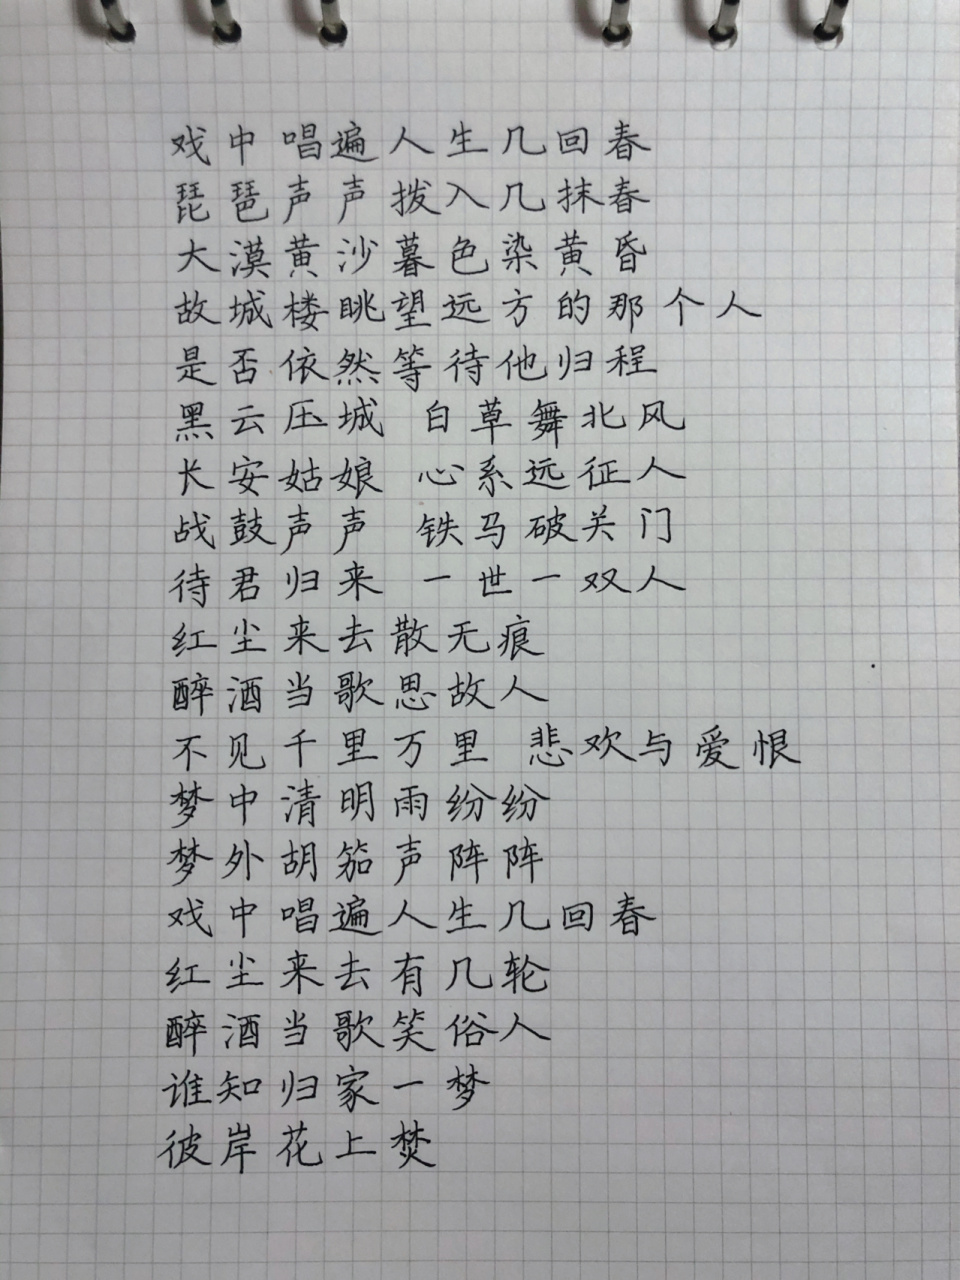 戏中唱遍人生几回春
琵琶声声拨入几抹春
大漠黄沙暮色染黄昏
故城楼眺望远方的那个人
是否依然等待他归程
黑云压城 白草舞北风
长安姑娘 心系远征人
战鼓声声 铁马破关门
待君归来 一世一双人
红尘来去散无痕
醉酒当歌思故人
不见千里万里 悲欢与爱恨
梦中清明雨纷纷
梦外胡笳声阵阵
戏中唱遍人生几回春
红尘来去有几轮
醉酒当歌笑俗人
谁知归家一梦
彼岸花上焚